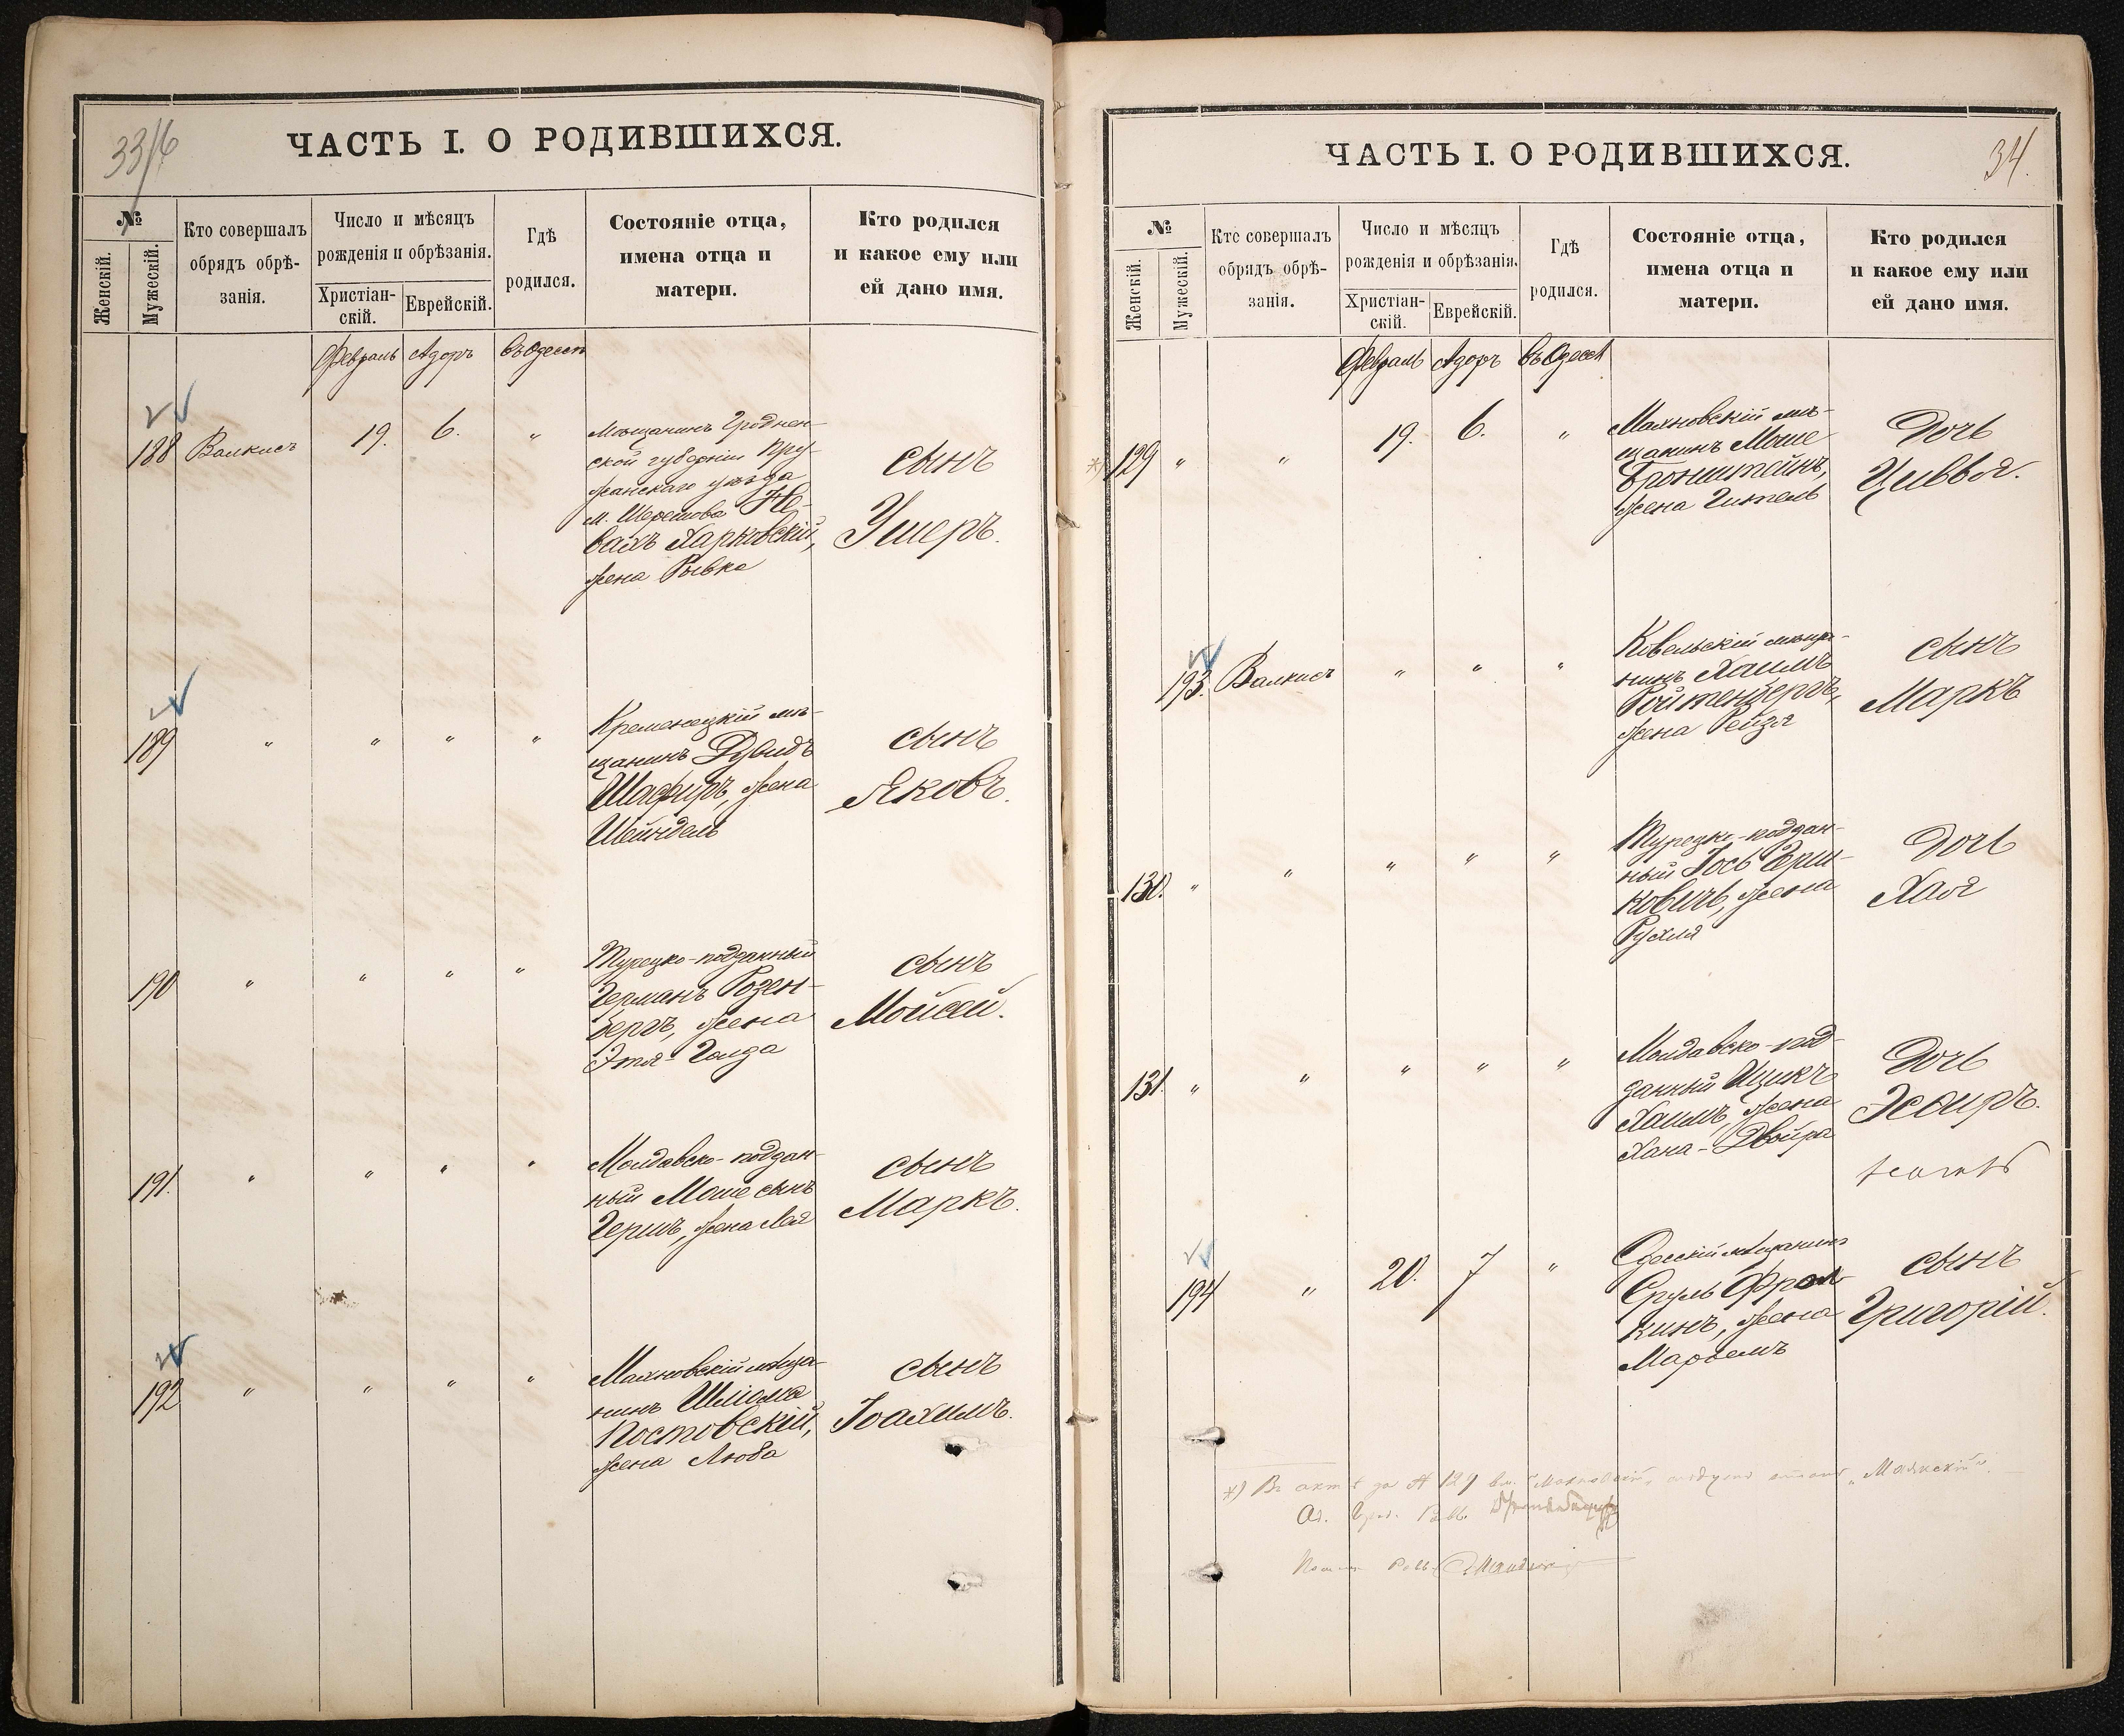 33/6
ЧАСТЬ I. О РОДИВШИХСЯ.
№
Женскій.
Мужескій.
Кто совершалъ
обрядъ обрѣ-
занія.
Число и мѣсяцъ
рожденія и обрѣзанія.
Христіан-
скій.
Еврейскій.
Гдѣ
родился.
Состояніе отца,
имена отца и
матери.
Кто родился
и какое ему или
ей дано имя.
Февраль Адоръ въ Одессѣ
188 Валкисъ 19. 6. "
Мѣщанинъ Гроднен-
ской губерніи Пру-
жанскаго уѣзда
м. Шерешова Не-
вахъ Харковскій,
жена Рывка
сынъ
Ушеръ.
189 " " " "
Кременецкій мѣ-
щанинъ Дувидъ
Шафиръ, жена
Шейндель
сынъ
Яковъ.
190 " " " "
Турецко-подданный
Германъ Розен-
бергъ, жена
Этя-Голда
сынъ
Мойсей.
191. " " " "
Молдавско-поддан-
ный Моше сынъ
Герша, жена Лея
сынъ
Маркъ.
192 " " " "
Махновскій мѣща-
нинъ Шліома
Постовскій,
жена Люба
сынъ
Іоахимъ.
34.
ЧАСТЬ I. О РОДИВШИХСЯ.
№
Женскій.
Мужескій.
Кто совершалъ
обрядъ обрѣ-
занія.
Число и мѣсяцъ
рожденія и обрѣзанія.
Христіан-
скій.
Еврейскій.
Гдѣ
родился.
Состояніе отца,
имена отца и
матери.
Кто родился
и какое ему или
ей дано имя.
Февраль Адоръ въ Одессѣ
*) 129 " " 19. 6. "
Махновскій мѣ-
щанинъ Моше
Бронштейнъ,
жена Гитель
Дочь
Цивья.
193. Валкисъ " " "
Ковельскій мѣща-
нинъ Хаимъ
Ройтенбергъ,
жена Рейзя
сынъ
Маркъ
130. " " " " "
Турецко-поддан-
ный Іось Герш-
ковичъ, жена
Рухля
Дочь
Хая
131. " " " " "
Молдавско-под-
данный Ицикъ
Хаимъ, жена
Хана-Двойра
Дочь
Эсѳиръ.
194 " 20. 7 "
Одесскій мѣщанинъ
Сруль Фрол-
кинъ, жена
Марьемъ
сынъ
Григорій.
*) Въ актѣ за № 129 вм. "Махновскій" "Маякскій".
Од. Гор. Равв.
Равв.